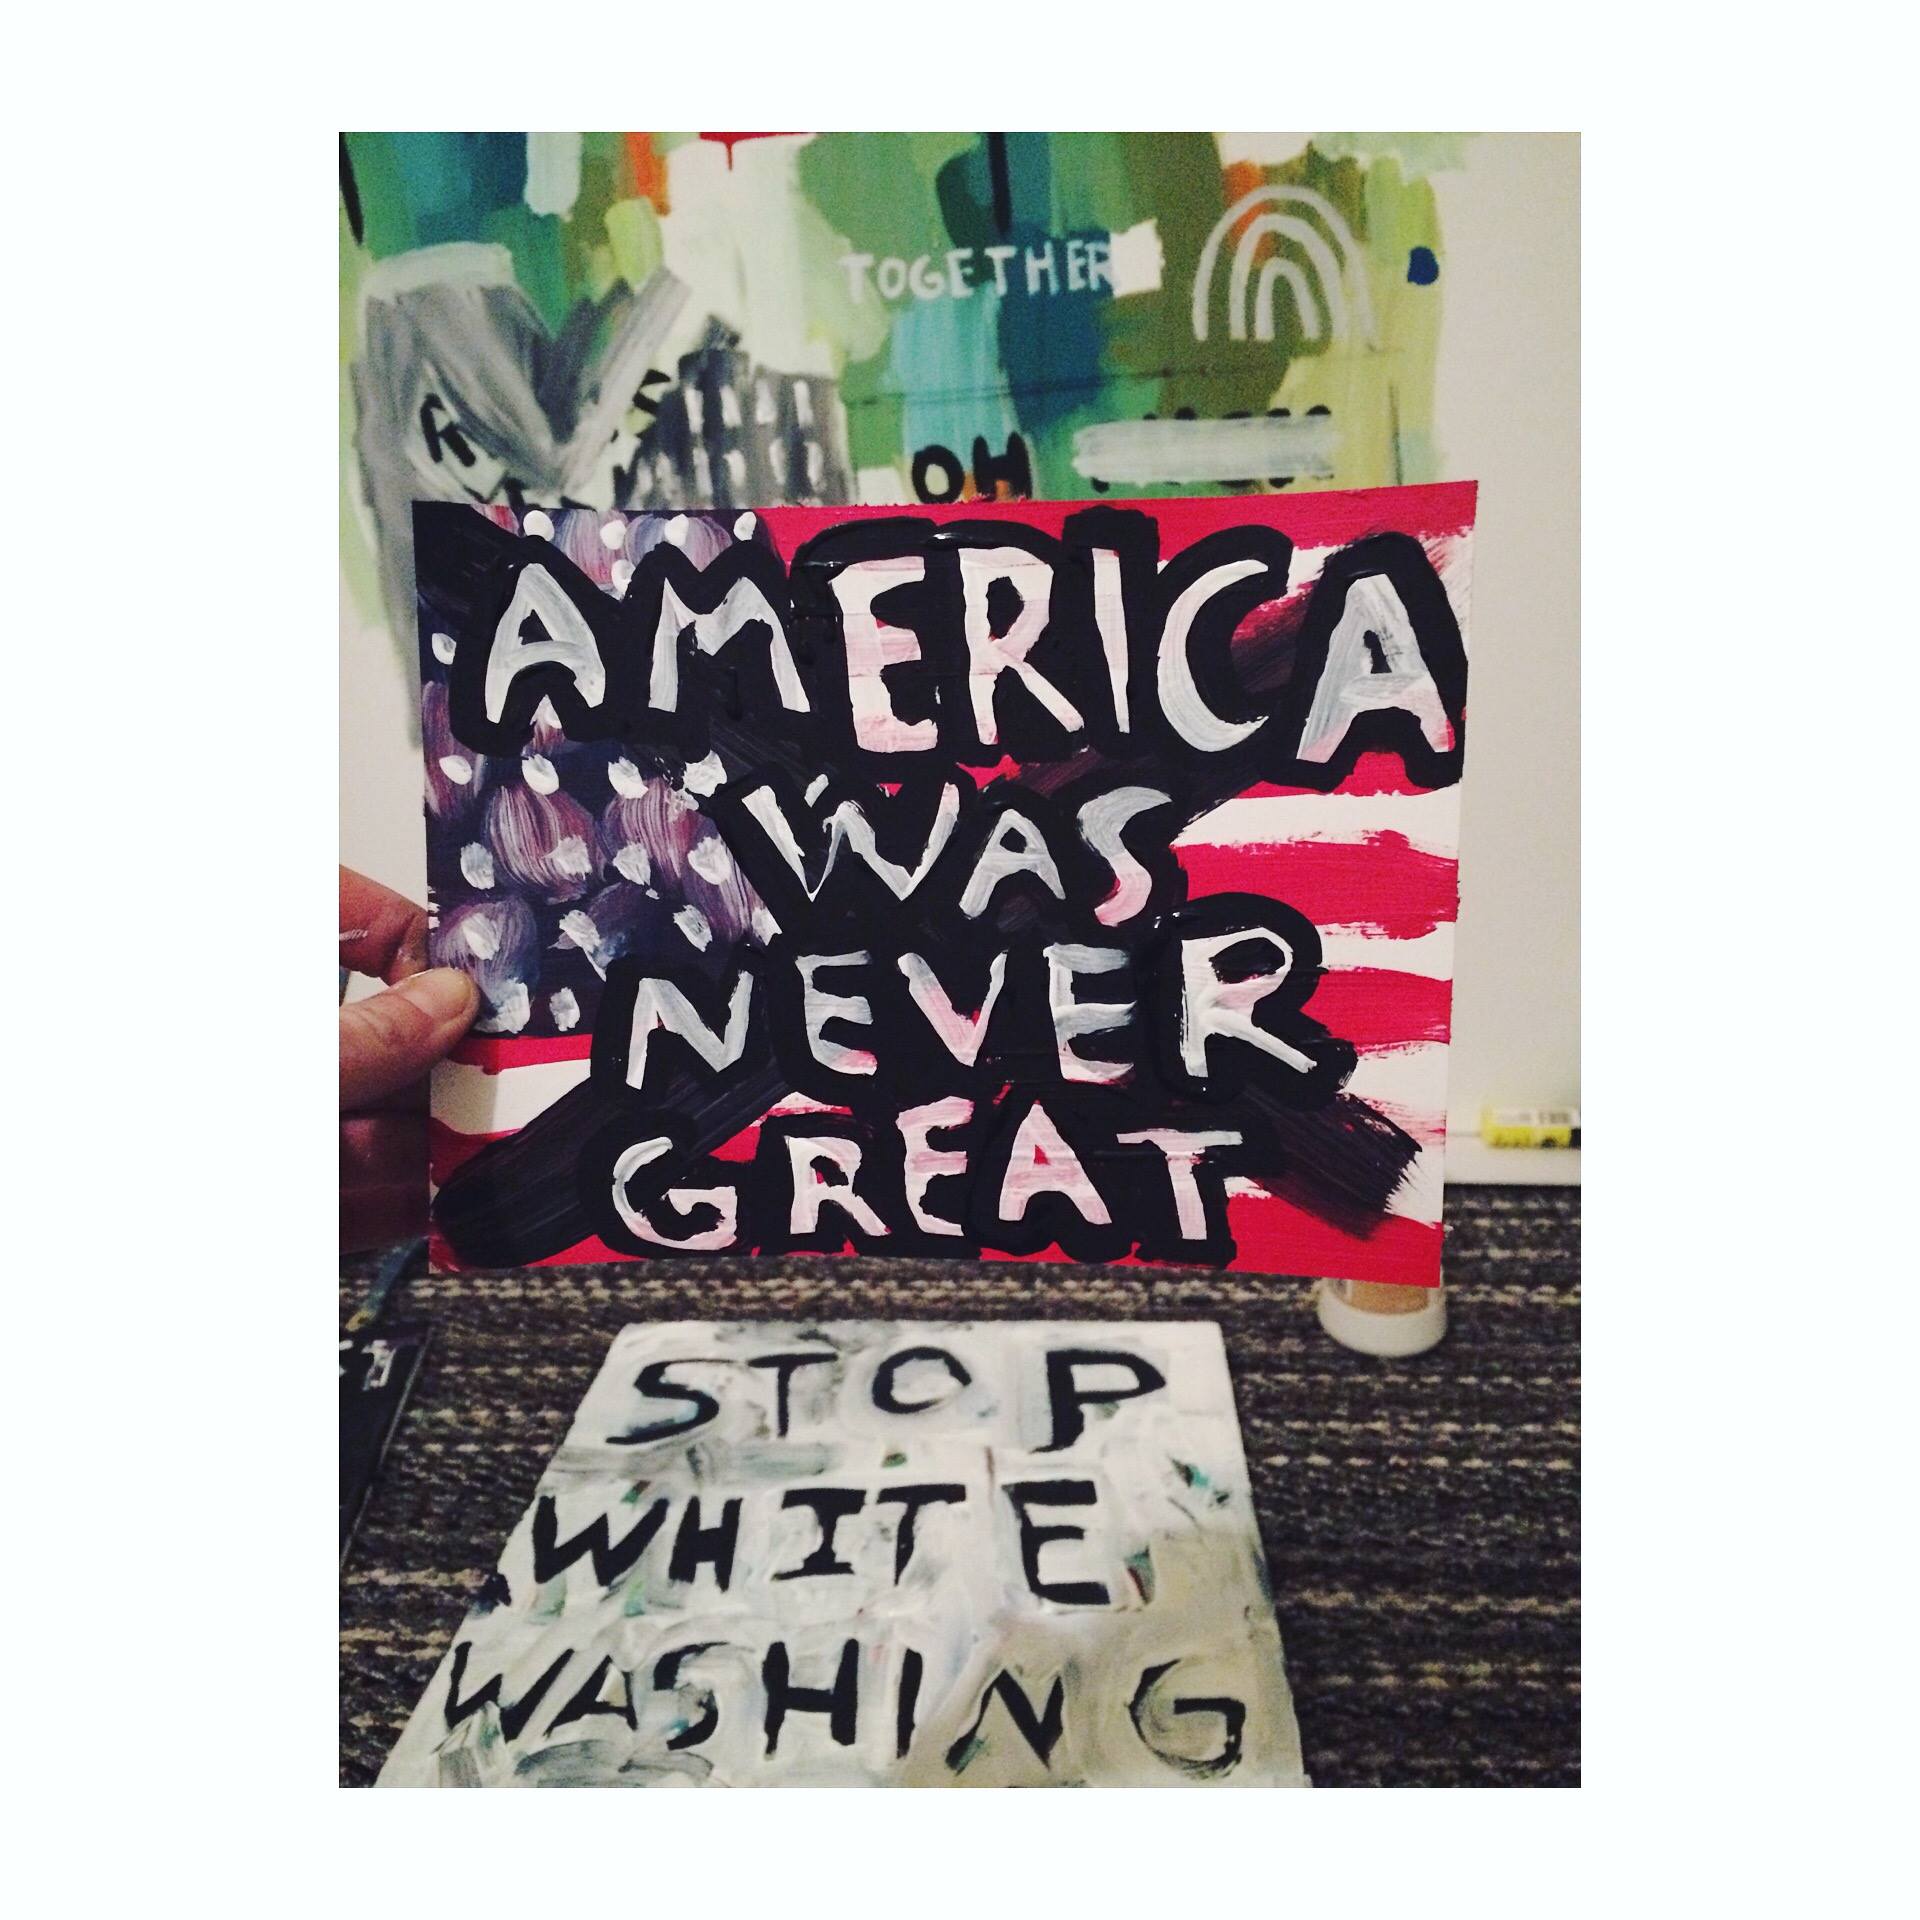 TOGETHER
OH
AMERICA
WAS
NEVER
GREAT
STOP
WHITE
WASHING